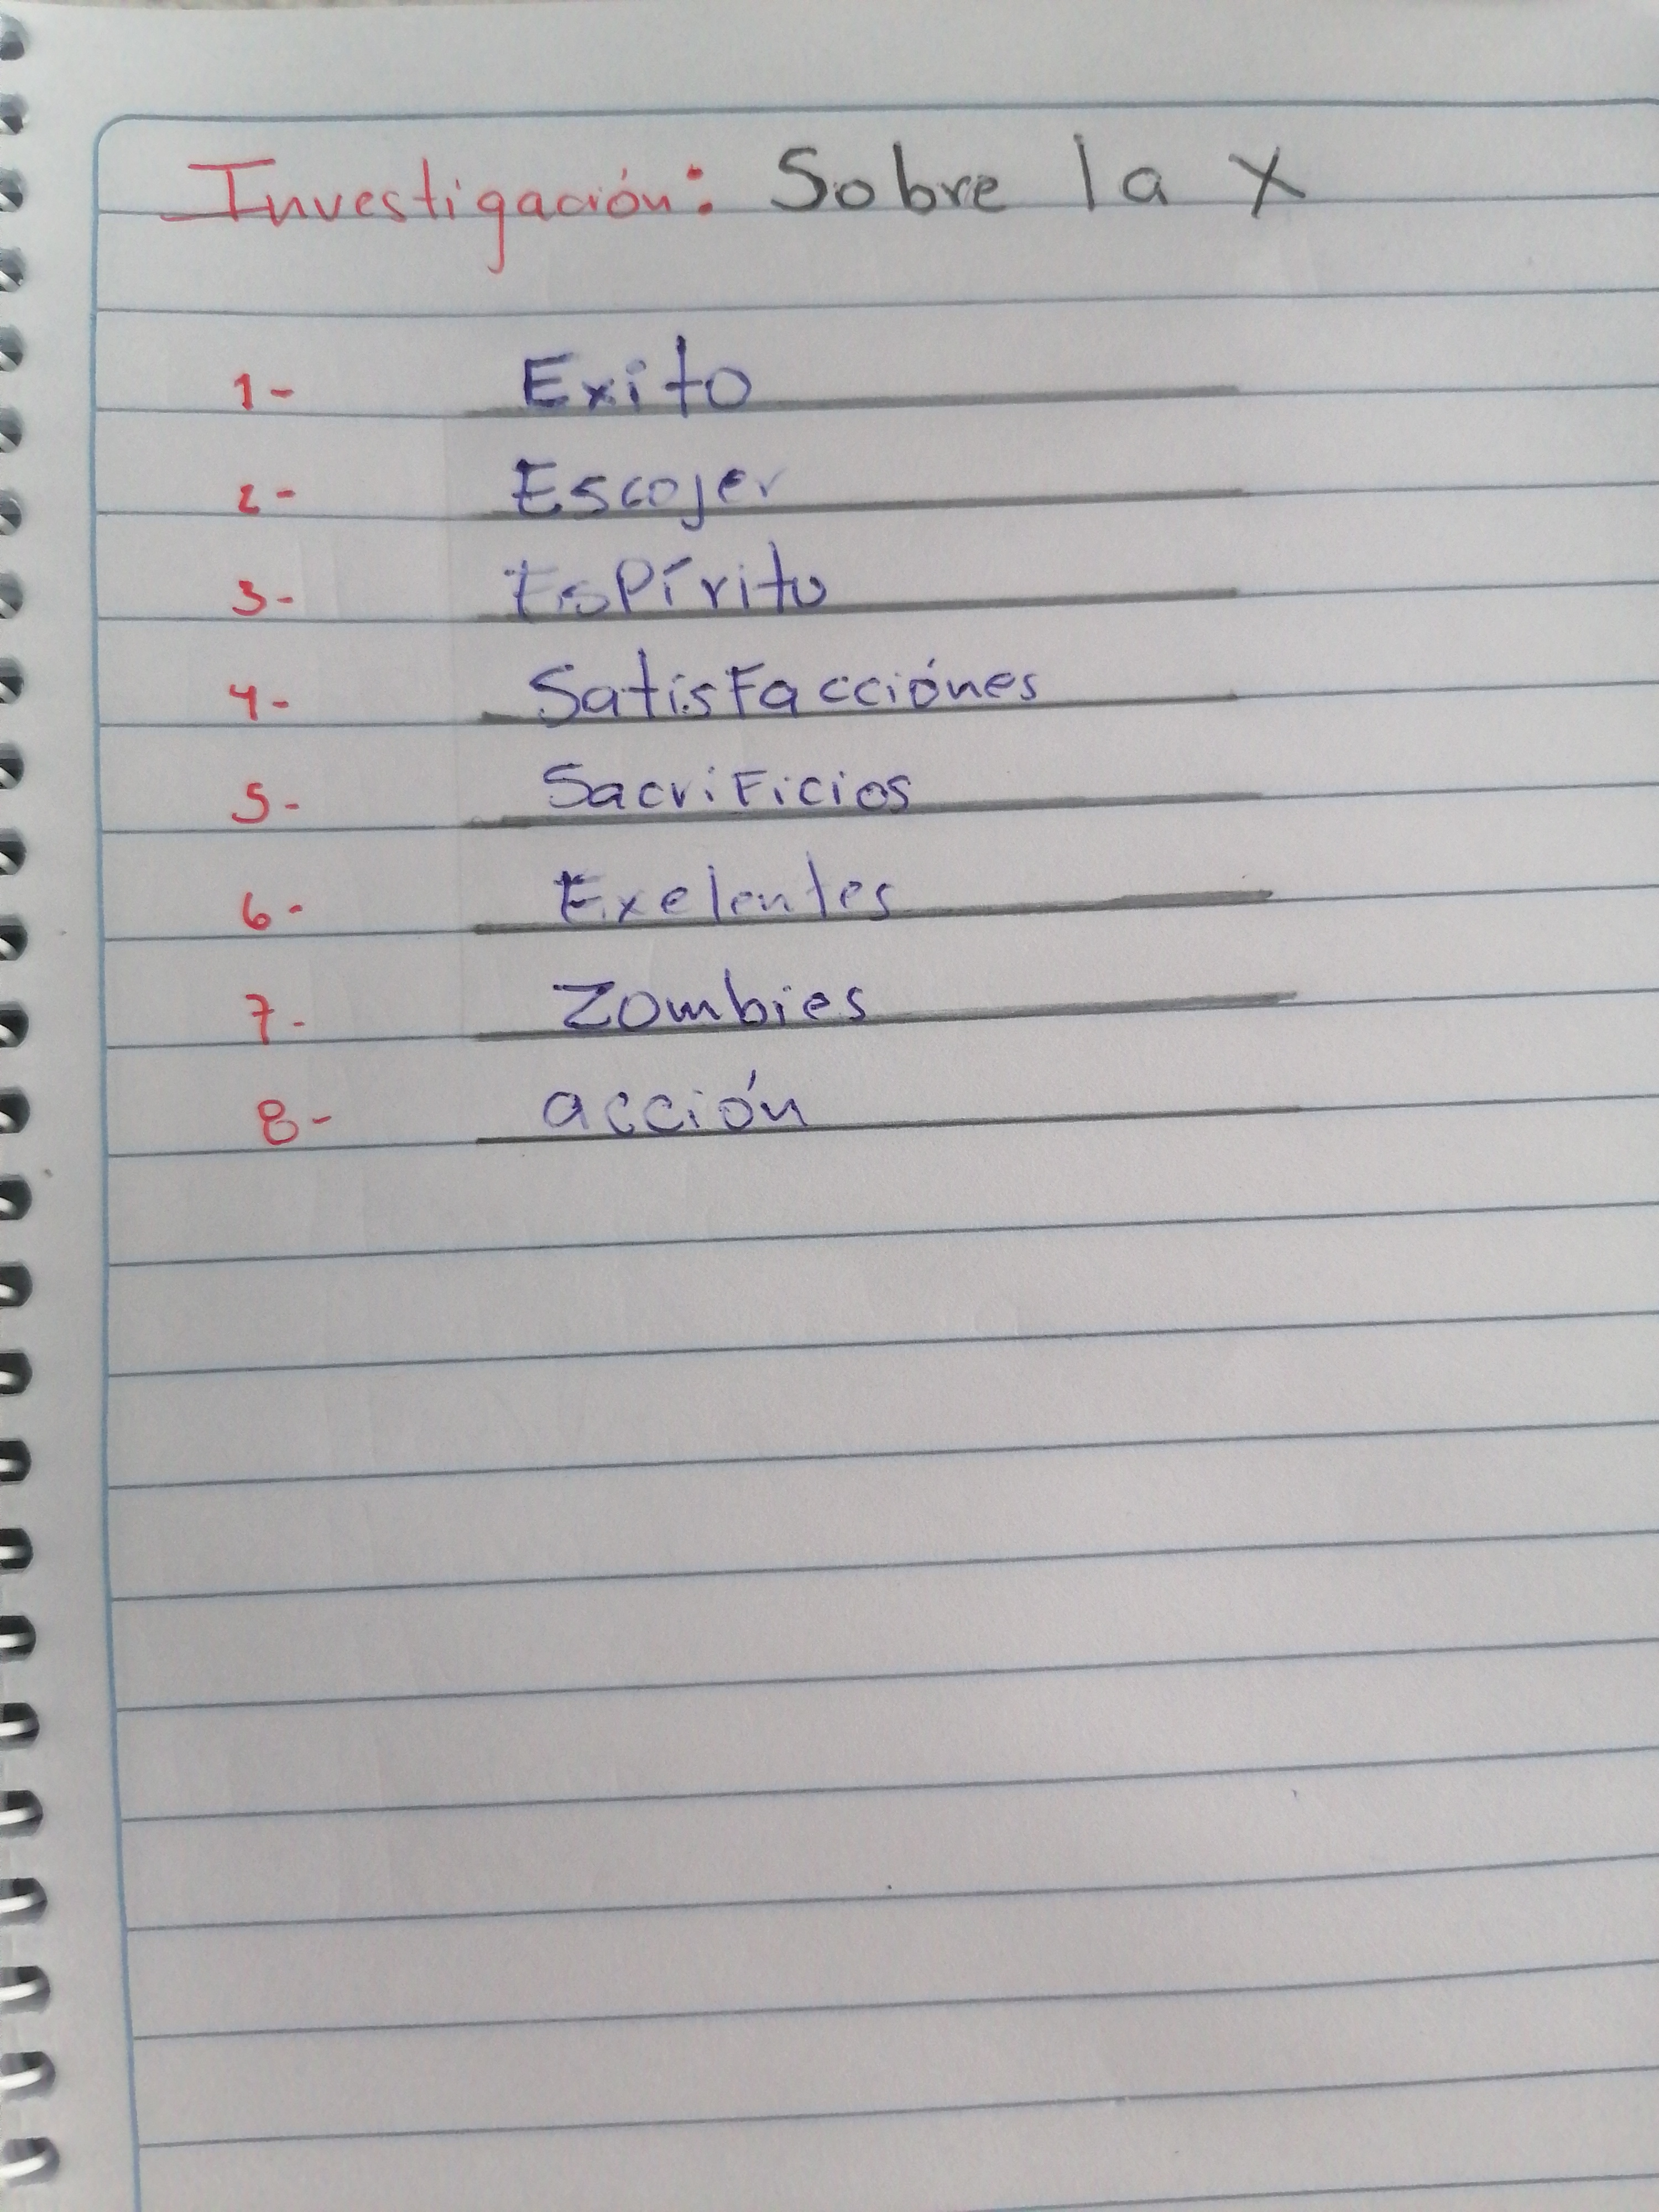 Investigación: Sobre la X
1- Exito
2- Escojer
3- Espíritu
4- Satisfacciónes
5- Sacrificios
6- Exelentes
7- Zombies
8- acción